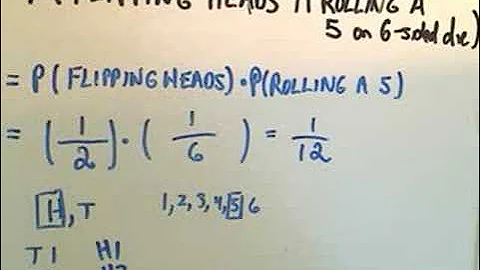 P(FLIPPING HEADS ∩ ROLLING A
5 on 6-sided die)
= P(FLIPPING HEADS)·P(ROLLING A 5)
= (1/2)·(1/6) = 1/12
H, T 1, 2, 3, 4, 5 6
T1 H1
H2